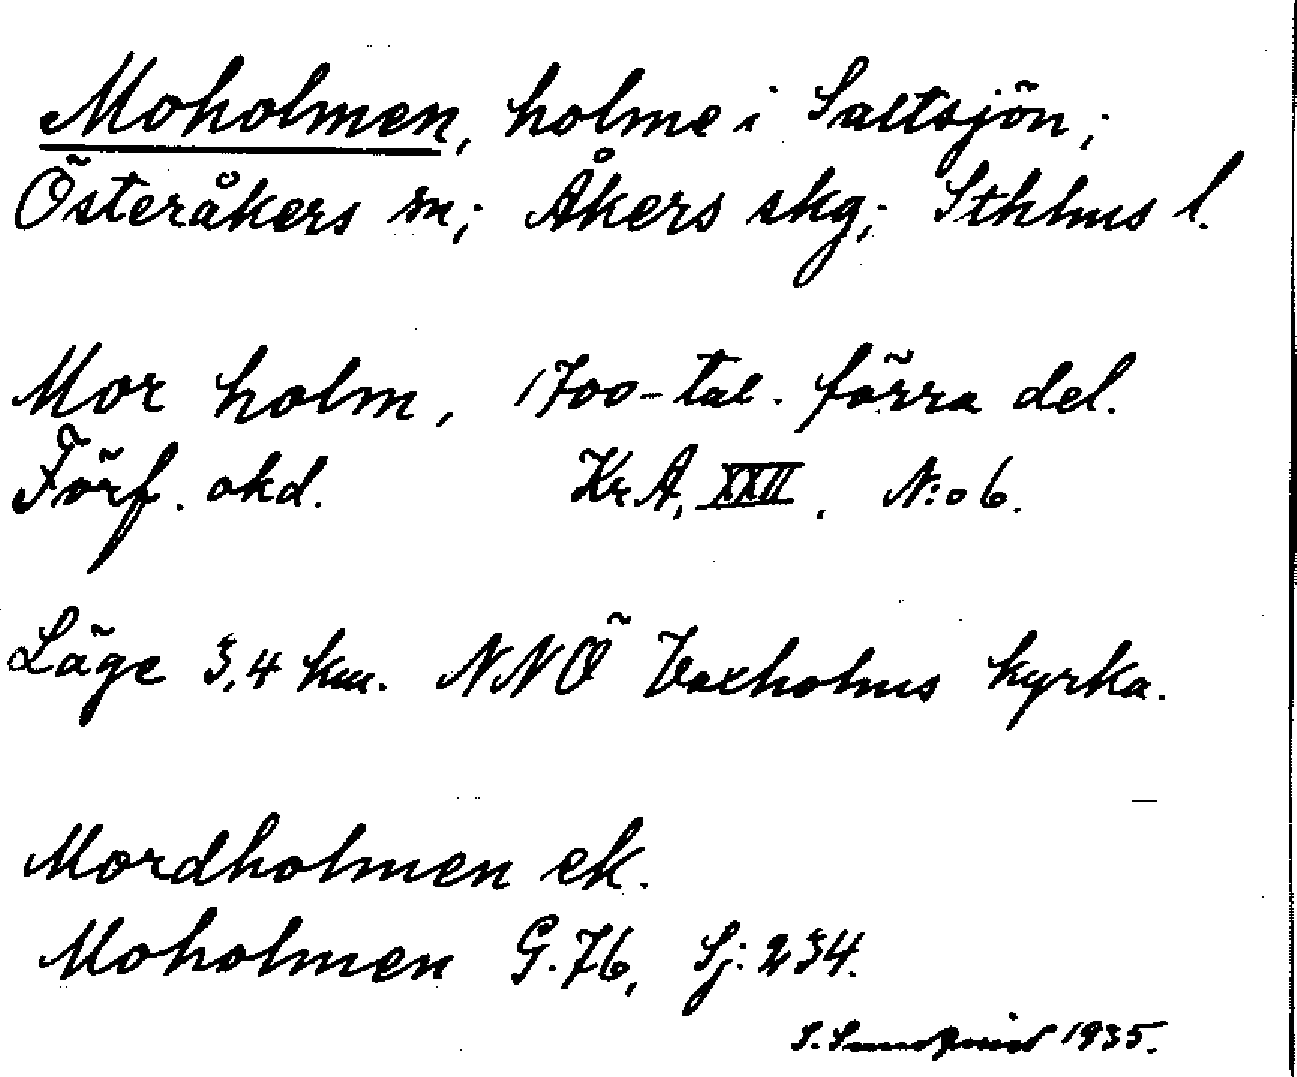 Moholmen, holme i Saltsjön;
Österåkers sn; Åkers skg; Sthlms l.
Mor holm, 1700-tal. förra del.
Förf. okd. Kr.A, XXII, N:o 6.
Läge 3,4 km. NNÖ Vaxholms kyrka.
Mordholmen ek.
Moholmen G.76, Sj: 234.
S. Sundqvist 1935.